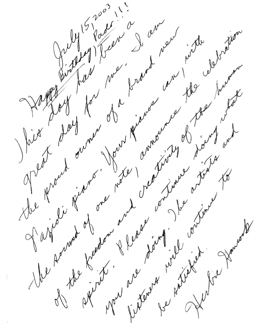 July 15, 2003
Happy Birthday, Paolo!!!
This day has been a
great day for me. I am
the proud owner of a brand new
Fazioli piano. Your pianos can, with
the sound of one note, announce the celebration
of the freedom and creativity of the human
spirit. Please continue doing what
you are doing. The artists and
listeners will continue to
be satisfied.
Herbie Hancock